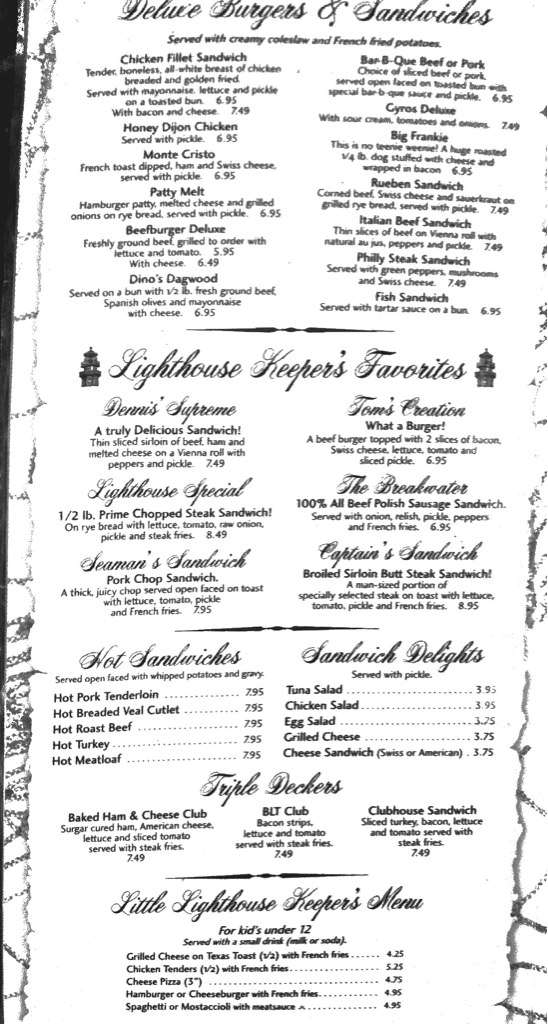 Deluxe Burgers & Sandwiches
Served with creamy coleslaw and French fried potatoes.
Chicken Fillet Sandwich
Tender, boneless, all-white breast of chicken
breaded and golden fried.
Served with mayonnaise, lettuce and pickle
on a toasted bun. 6.95
With bacon and cheese. 7.49
Honey Dijon Chicken
Served with pickle. 6.95
Monte Cristo
French toast dipped, ham and Swiss cheese,
served with pickle. 6.95
Patty Melt
Hamburger patty, melted cheese and grilled
onions on rye bread, served with pickle. 6.95
Beefburger Deluxe
Freshly ground beef, grilled to order with
lettuce and tomato. 5.95
With cheese. 6.49
Dino's Dagwood
Served on a bun with 1/2 lb. fresh ground beef,
Spanish olives and mayonnaise
with cheese. 6.95
Bar-B-Que Beef or Pork
Choice of sliced beef or pork,
served open faced on toasted bun with
special bar-b-que sauce and pickle. 6.95
Gyros Deluxe
With sour cream, tomatoes and onions. 7.49
Big Frankie
This is no teenie weenie! A huge roasted
1/4 lb. dog stuffed with cheese and
wrapped in bacon 6.95
Rueben Sandwich
Corned beef, Swiss cheese and sauerkraut on
grilled rye bread, served with pickle. 7.49
Italian Beef Sandwich
Thin slices of beef on Vienna roll with
natural au jus, peppers and pickle. 7.49
Philly Steak Sandwich
Served with green peppers, mushrooms
and Swiss cheese. 7.49
Fish Sandwich
Served with tartar sauce on a bun. 6.95
Lighthouse Keeper's Favorites
Dennis' Supreme
A truly Delicious Sandwich!
Thin sliced sirloin of beef, ham and
melted cheese on a Vienna roll with
peppers and pickle. 7.49
Lighthouse Special
1/2 lb. Prime Chopped Steak Sandwich!
On rye bread with lettuce, tomato, raw onion,
pickle and steak fries. 8.49
Seaman's Sandwich
Pork Chop Sandwich.
A thick, juicy chop served open faced on toast
with lettuce, tomato, pickle
and French fries. 7.95
Tom's Creation
What a Burger!
A beef burger topped with 2 slices of bacon,
Swiss cheese, lettuce, tomato and
sliced pickle. 6.95
The Breakwater
100% All Beef Polish Sausage Sandwich.
Served with onion, relish, pickle, peppers
and French fries. 6.95
Captain's Sandwich
Broiled Sirloin Butt Steak Sandwich!
A man-sized portion of
specially selected steak on toast with lettuce,
tomato, pickle and French fries. 8.95
Hot Sandwiches
Served open faced with whipped potatoes and gravy.
Hot Pork Tenderloin 7.95
Hot Breaded Veal Cutlet 7.95
Hot Roast Beef 7.95
Hot Turkey 7.95
Hot Meatloaf 7.95
Sandwich Delights
Served with pickle.
Tuna Salad 3.95
Chicken Salad 3.95
Egg Salad 3.75
Grilled Cheese 3.75
Cheese Sandwich (Swiss or American) 3.75
Triple Deckers
Baked Ham & Cheese Club
Surgar cured ham, American cheese,
lettuce and sliced tomato
served with steak fries.
7.49
BLT Club
Bacon strips,
lettuce and tomato
served with steak fries.
7.49
Clubhouse Sandwich
Sliced turkey, bacon, lettuce
and tomato served with
steak fries.
7.49
Little Lighthouse Keeper's Menu
For kid's under 12
Served with a small drink (milk or soda).
Grilled Cheese on Texas Toast (1/2) with French fries 4.25
Chicken Tenders (1/2) with French fries 5.25
Cheese Pizza (3") 4.75
Hamburger or Cheeseburger with French fries 4.95
Spaghetti or Mostaccioli with meatsauce 4.95